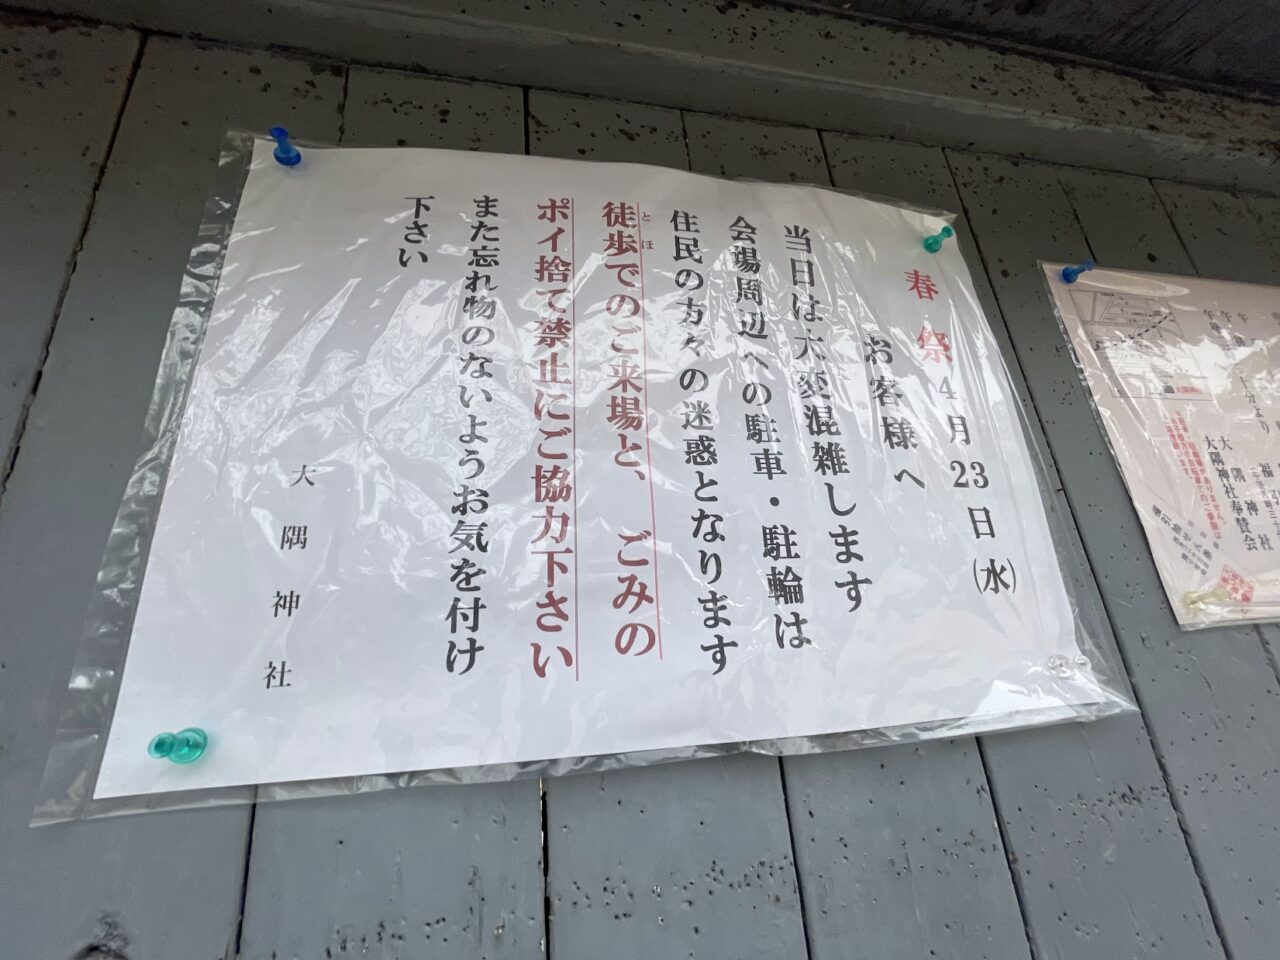 春祭4月23日(水)
お客様へ
当日は大変混雑します
会場周辺への駐車・駐輪は
住民の方々の迷惑となります
とほ
徒歩でのご来場と、ごみの
ポイ捨て禁止にご協力下さい
また忘れ物のないようお気を付け
下さい
大隅神社
十分より
大隅神社奉賛会